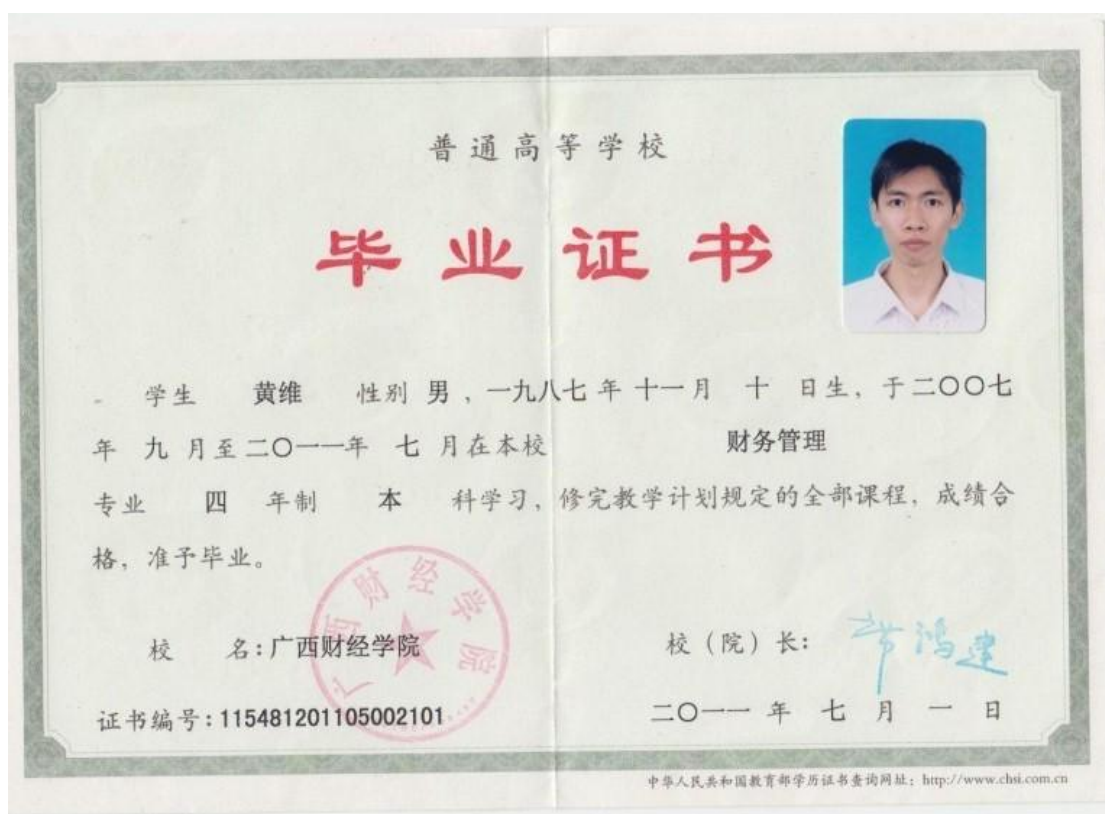 普通高等学校
毕业证书
学生 黄维 性别 男，一九八七年 十一月 十 日生，于二〇〇七
年 九 月至二〇一一年 七 月在本校 财务管理
专业 四 年制 本 科学习，修完教学计划规定的全部课程，成绩合
格，准予毕业。
广西财经学院
校 名：广西财经学院
校（院）长：
证书编号：115481201105002101
二〇一一 年 七 月 一 日
中华人民共和国教育部学历证书查询网址：http://www.chsi.com.cn